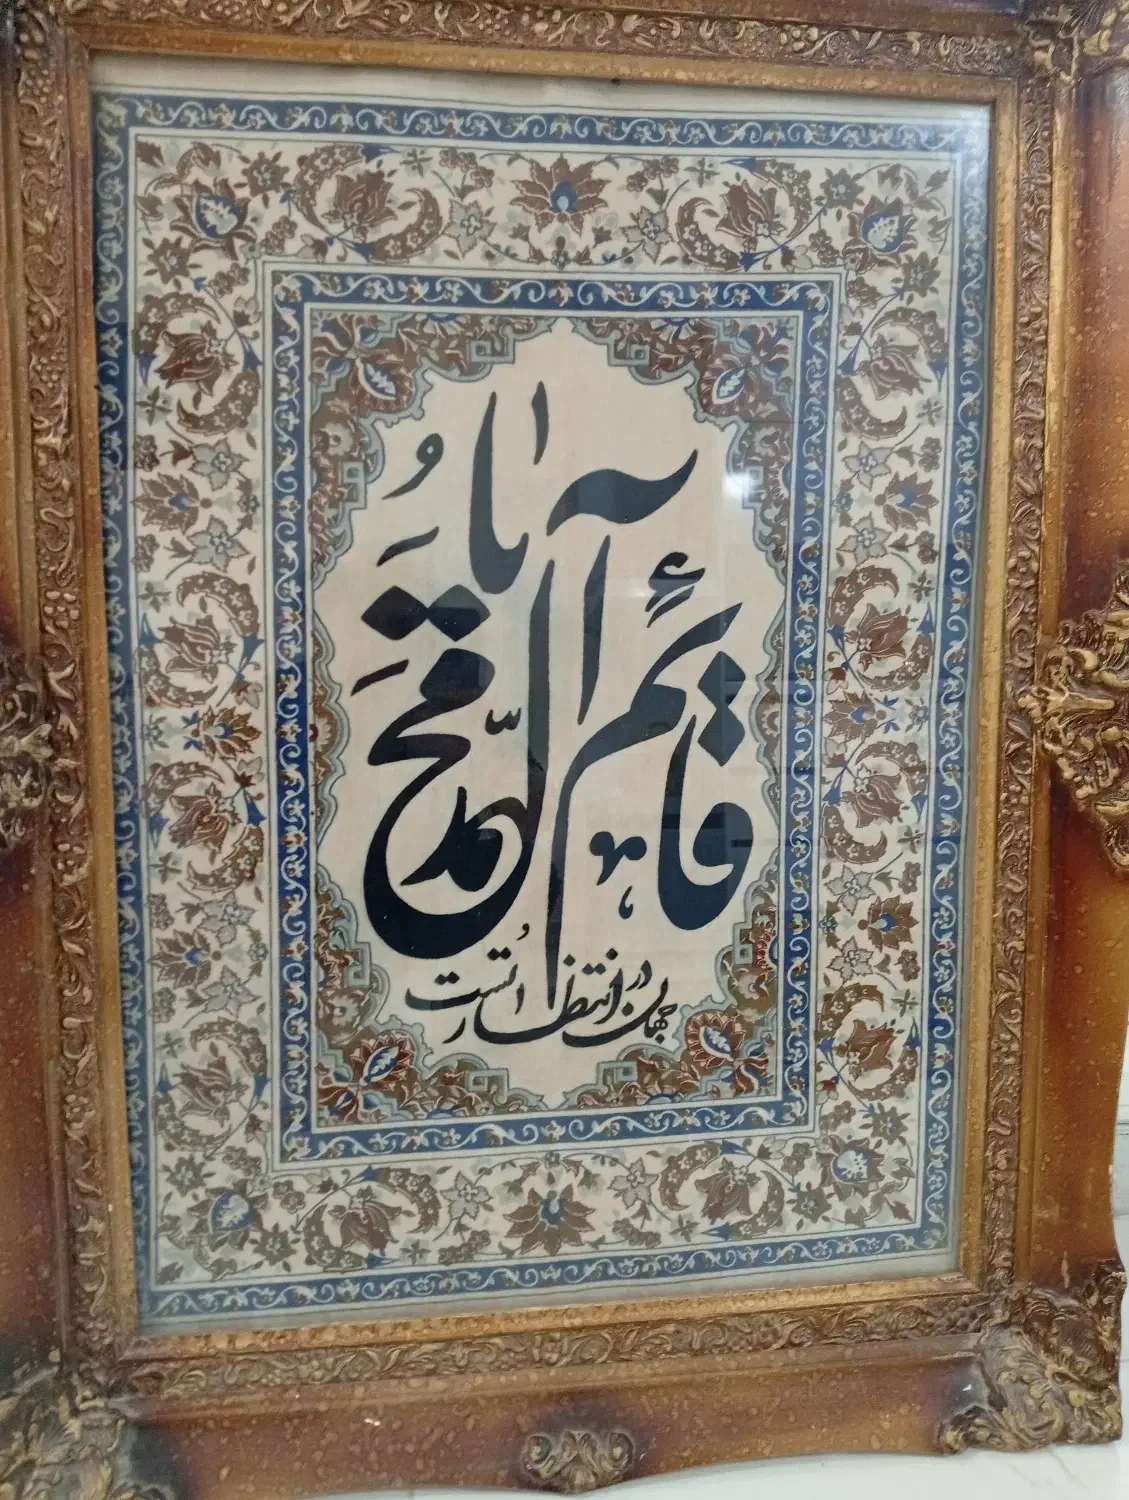 یا قائمَ آلِ مُحَمَّد
جهان در انتظار تُست